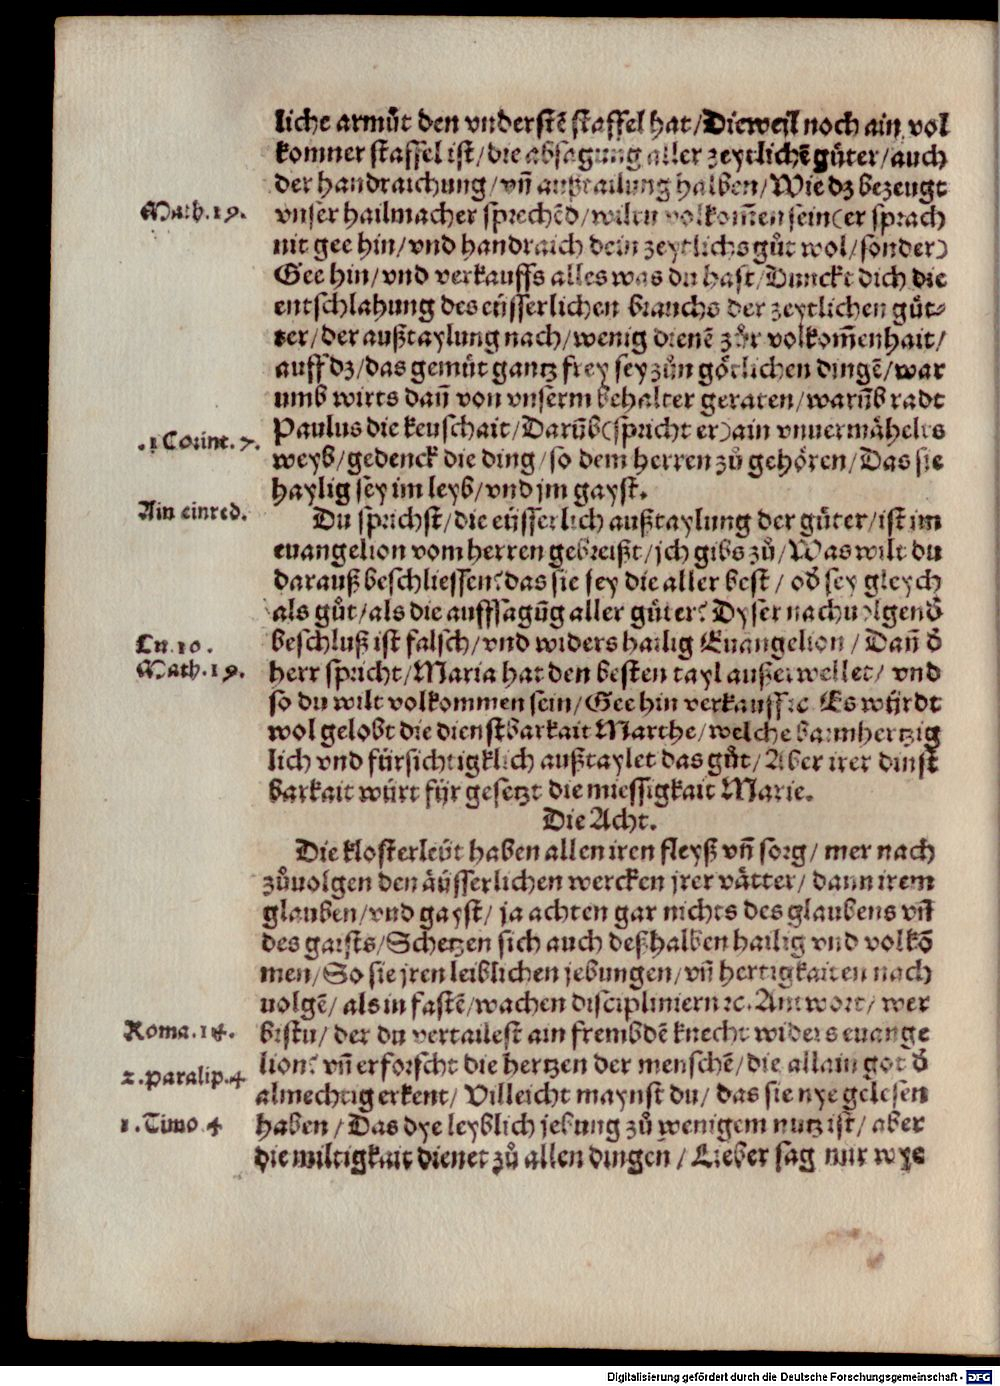 liche armůt den vnderstẽ staffel hat/Dieweil noch ain vol
komner staffel ist/die absagung aller zeytlichẽ gůter/auch
der handraichung/vñ außtailung halben/Wie dz bezeugt
Math.19.
vnser hailmacher sprechẽd/wiltu volkom̃en sein(er sprach
nit gee hin/vnd handraich dein zeytlichs gůt wol/sonder)
Gee hin/vnd verkauffs alles was du hast/Dunckt dich die
entschlahung des eüsserlichen brauchs der zeytlichen gůt⸗
ter/der außtaylung nach/wenig dienẽ zůr volkom̃enhait/
auff dz/das gemüt gantz frey sey zůn götlichen dingẽ/war
umb wirts dañ von vnserm behalter geraten/warũb radt
.1 Corint. 7.
Paulus die keuschait/Darũb(spricht er)ain vnuermähelts
weyb/gedenck die ding/so dem herren zů gehören/Das sie
haylig sey im leyb/vnd jm gayst.
Ain einred.
Du sprichst/die eüsserlich außtaylung der güter/ist im
euangelion vom herren gebreißt/jch gibs zů/Was wilt du
darauß beschliessen?das sie sey die aller best/ od̃ sey gleych
als gůt/als die aufffsagũg aller güter? Dyser nachuolgend̃
Lu.10.
beschluß ist falsch/vnd widers hailig Euangelion/ Dañ d̃
Math.19.
herr spricht/Maria hat den besten tayl außerwellet/ vnd
so du wilt volkommen sein/Gee hin verkauff ꝛc Es würdt
wol gelobt die dienstbarkait Marthe/welche barmhertzig
lich vnd fürsichtigklich außtaylet das gůt/Aber irer dinst
barkait würt für gesetzt die miessigkait Marie.
Die Acht.
Die klosterleüt haben allen iren fleyß vñ sorg/ mer nach
zůuolgen den äüsserlichen wercken jrer vätter/ dann irem
glauben/vnd gayst/ ja achten gar nichts des glaubens vñ
des gaists/Schetzen sich auch deßhalben hailig vnd volkõ
men/So sie jren leiblichen iebungen/vñ hertigkaiten nach
uolgẽ/als in fastẽ/wachen discipliniern ꝛc. Antwort/ wer
Roma.14.
bistu/ der du vertailest ain frembdẽ knecht widers euange
lion? vñ erforscht die hertzen der menschẽ/die allain got d̃
2.paralip.4
almechtig erkent/ Villeicht maynst du/ das sie nye gelesen
1.Timo.4
haben/ Das dye leyblich jebung zů wenigem nutz ist/ aber
die miltigkait dienet zů allen dingen/ Lieber sag mir wye
Digitalisierung gefördert durch die Deutsche Forschungsgemeinschaft - DFG